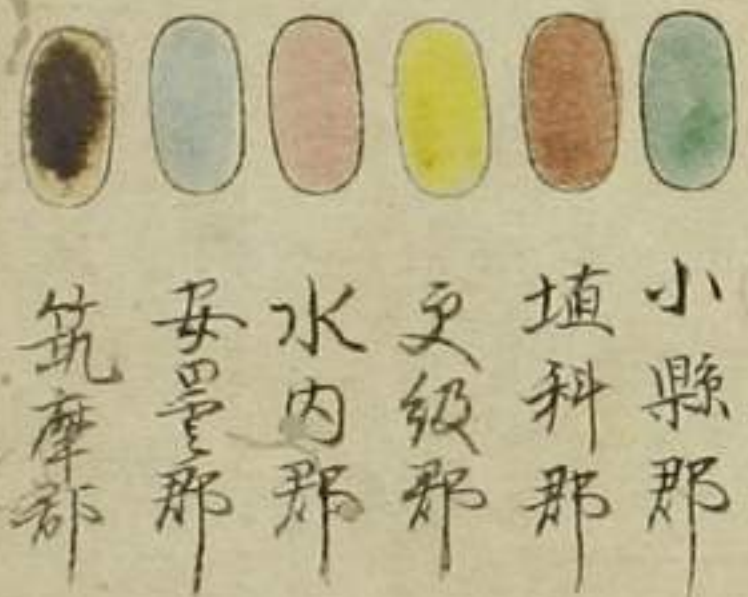 小縣郡
埴科郡
更級郡
水内郡
安曇郡
筑摩郡